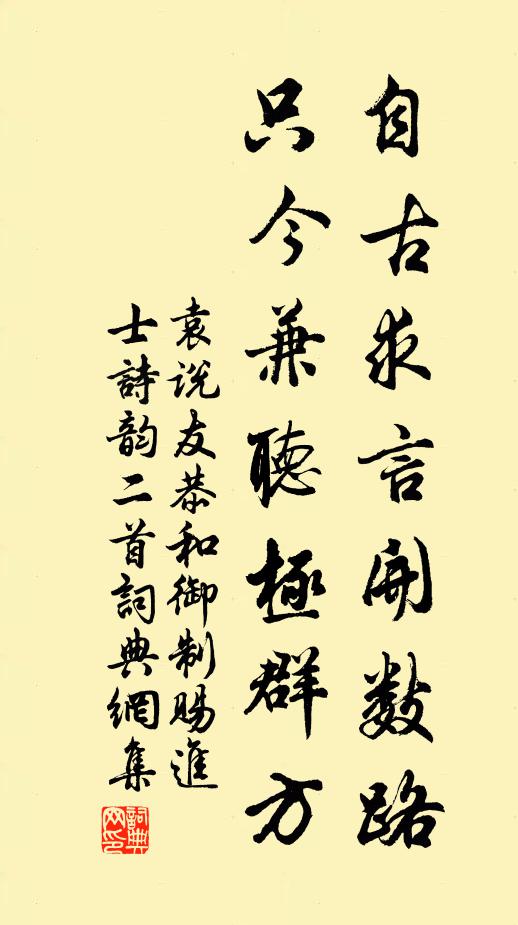 自古求言開數路
只今兼聽極群方
袁説友恭和御制賜進
士詩韵二首詞典網集
詞典
网印